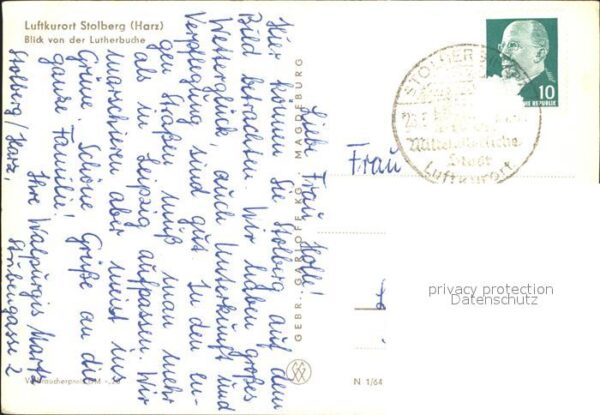 Luftkurort Stolberg (Harz)
Blick von der Lutherbuche
Liebe Frau Holle!
Hier können Sie Stolberg auf dem
Bild betrachten. Wir haben großes
Wetterglück, auch Unterkunft und
Verpflegung sind gut. In den en-
gen Straßen muß man mehr
als in Leipzig aufpassen. Wir
marschieren aber meist ins
Grüne. Schöne Grüße an die
ganze Familie!
Ihre Walpurgis Martz
Stolberg/Harz,
Stubengasse 2
Verbraucherpreis DM -,20
GEBR. GARLOFF KG., MAGDEBURG
N 1/64
Frau
10
STOLBERG
23.
Mittelalterliche
Stadt
Luftkurort
privacy protection
Datenschutz